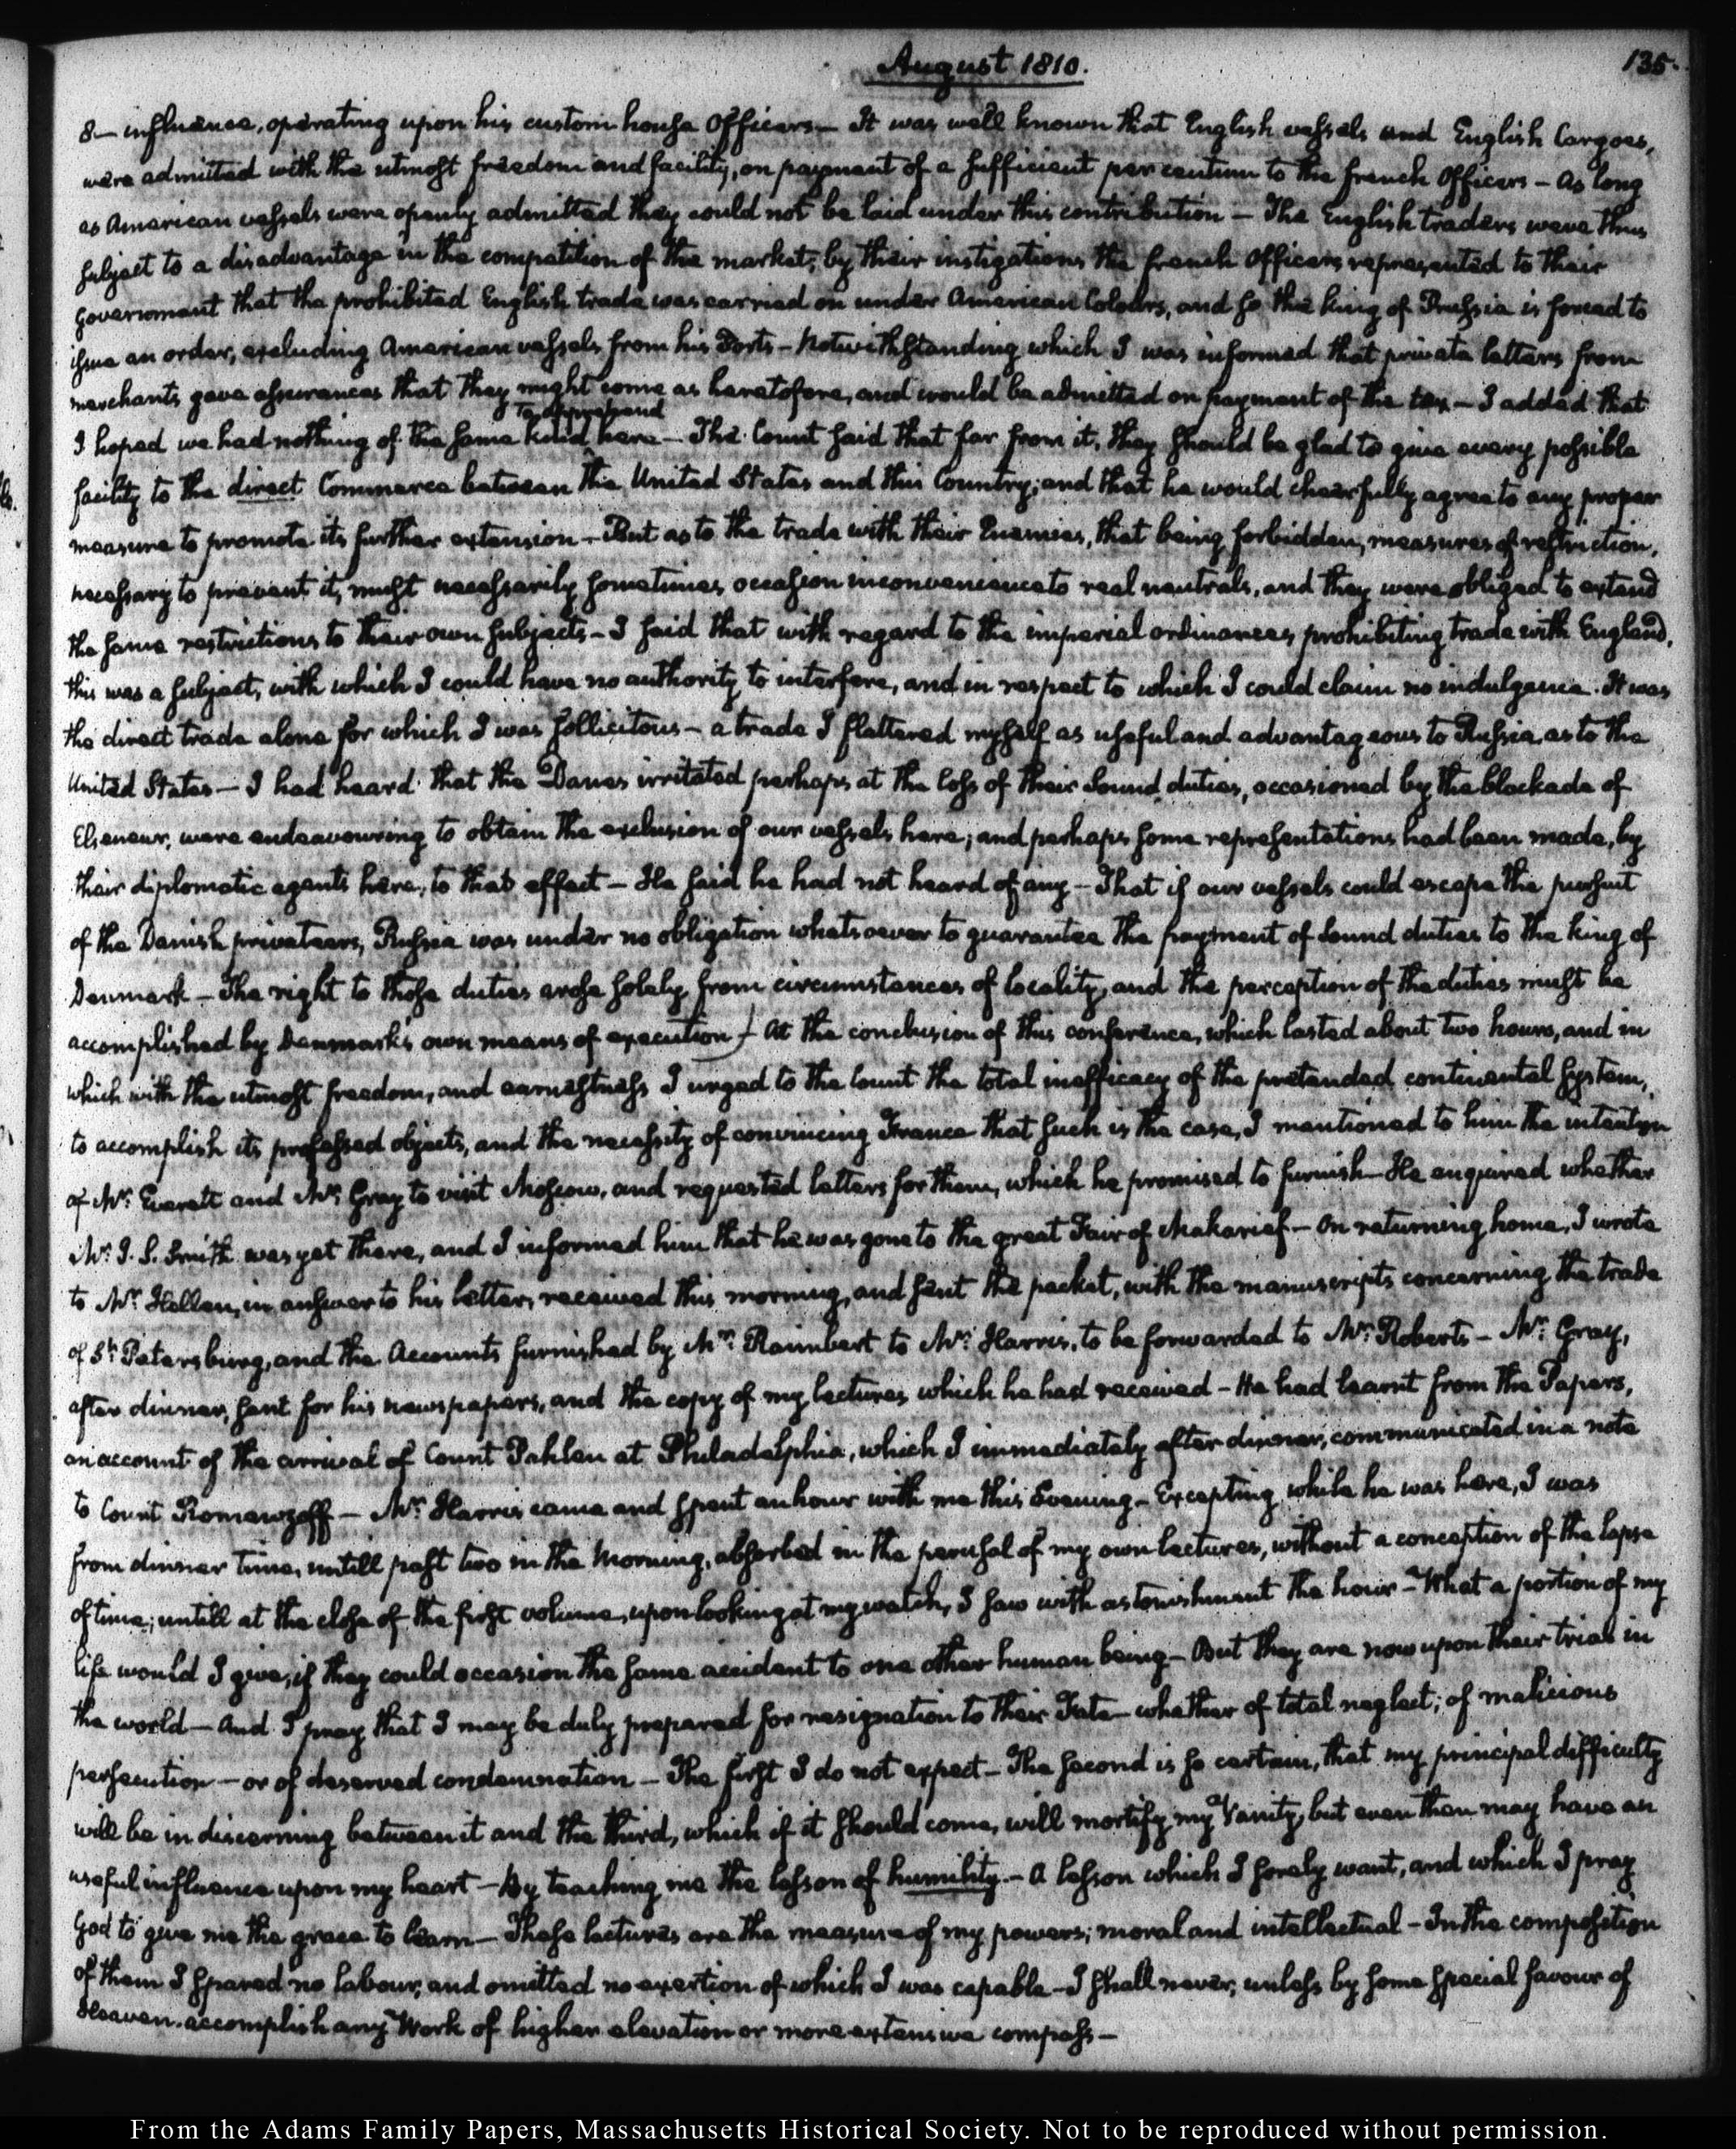 August 1810. 135.
8— influence, operating upon his custom house Officers— It was well known that English vessels and English Cargoes,
were admitted with the utmost freedom and facility, on payment of a sufficient per centum to the French Officers— As long
as American vessels were openly admitted they could not be laid under this contribution— The English traders were thus
subject to a disadvantage in the competition of the market; by their instigations the French Officers represented to their
Government that the prohibited English trade was carried on under American Colours, and so the king of Prussia is forced to
issue an order, excluding American vessels from his Ports— Notwithstanding which I was informed that private letters from
merchants gave assurances that they might come as heretofore, and would be admitted on payment of the tax— I added that
to apprehend
I hoped we had nothing of the same kind here— The Count said that far from it, they should be glad to give every possible
facility to the direct Commerce between the United States and this Country; and that he would cheerfully agree to any proper
measure to promote its further extension— But as to the trade with their Enemies, that being forbidden, measures of restriction,
necessary to prevent it, must necessarily sometimes occasion inconvenience to real neutrals, and they were obliged to extend
the same restrictions to their own subjects— I said that with regard to the imperial ordinances, prohibiting trade with England,
this was a subject, with which I could have no authority to interfere, and in respect to which I could claim no indulgence. It was
the direct trade alone for which I was sollicitous— a trade I flattered myself as useful and advantageous to Russia as to the
United States— I had heard that the Danes irritated perhaps at the loss of their Sound duties, occasioned by the blockade of
Elseneur, were endeavouring to obtain the exclusion of our vessels here; and perhaps some representations had been made, by
their diplomatic agents here, to that effect— He said he had not heard of any— That if our vessels could escape the pursuit
of the Danish privateers, Russia was under no obligation whatsoever to guarantee the payment of Sound duties to the king of
Denmark— The right to those duties arose solely from circumstances of locality, and the perception of the duties must be
accomplished by Denmark's own means of execution) At the conclusion of this conference, which lasted about two hours, and in
which with the utmost freedom, and earnestness I urged to the Count the total inefficacy of the pretended continental system,
to accomplish its professed objects, and the necessity of convincing France that such is the case, I mentioned to him the intention
of Mr. Everett and Mr. Gray to visit Moscow, and requested letters for them, which he promised to furnish— He enquired whether
Mr. J. S. Smith was yet there, and I informed him that he was gone to the great Fair of Makarief— On returning home, I wrote
to Mr. Hellen, in answer to his letter, received this morning, and sent the packet, with the manuscripts concerning the trade
of St. Petersburg, and the Accounts furnished by Mr. Raimbert to Mr. Harris, to be forwarded to Mr. Roberts— Mr. Gray,
after dinner, sent for his newspapers, and the copy of my lectures which he had received— He had learnt from the Papers,
an account of the arrival of Count Pahlen at Philadelphia, which I immediately after dinner, communicated in a note
to Count Romanzoff— Mr. Harris came and spent an hour with me this Evening— Excepting while he was here, I was
from dinner time, untill past two in the Morning, absorbed in the perusal of my own lectures, without a conception of the lapse
of time; untill at the close of the first volume, upon looking at my watch, I saw with astonishment the hour— What a portion of my
life would I give, if they could occasion the same accident to one other human being— But they are now upon their trial in
the world— And I pray that I may be duly prepared for resignation to their Fate— whether of total neglect; of malicious
persecution— or of deserved condemnation— The first I do not expect— The second is so certain, that my principal difficulty
will be in discerning between it and the third, which if it should come, will mortify my Vanity, but even then may have an
useful influence upon my heart— By teaching me the lesson of humility.— A lesson which I sorely want, and which I pray
God to give me the grace to learn— These lectures are the measure of my powers; moral and intellectual— In the composition
of them I spared no labour, and omitted no exertion of which I was capable— I shall never, unless by some special favour of
Heaven accomplish any Work of higher elevation or more extensive compass—
From the Adams Family Papers, Massachusetts Historical Society. Not to be reproduced without permission.